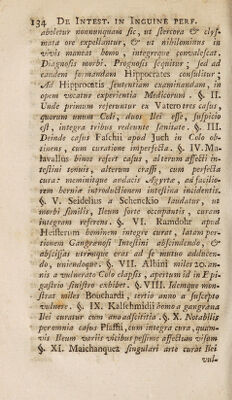 134 DE INTEST. IN INGUINE PERF.
aboletur nonnunquam sic, ut stercora & clys-
mata ore expellantur, & ut nihilominus in
vivis maneat homo, integreque convalescat.
Diagnosis morbi. Prognosis sequitur; sed ad
eandem formandam Hippocrates consulitur;
Ad Hippocratis sententiam examinandam, in
opem vocatur experientia Medicorum. §. II.
Unde primum referuntur ex Vatero tres casus,
quorum unum Coli, duos Ilei esse, suspicio
est, integra tribus redeunte sanitate. §. III.
Deinde casus Falchii apud Juch in Colo ob-
tinens, cum curatione imperfecta. §. IV. Ma-
lavallus binos refert casus, alterum affecti in-
testini tenuis, alterum crassi, cum perfecta
cura: meminitque audacis Agyrtæ, ad facilio-
rem herniæ introductionem intestina incidentis.
§. V. Seidelius a Schenckio laudatur, ut
morbi similis, Ileum forte occupantis, curam
integram referens. §. VI. Ramdohr apud
Heisterum hominem integre curat, latam por-
tionem Gangrænosi Intestini abscindendo, &
abscissas utrimque oras ad se mutuo adducen-
do, uniendoque. §. VII. Albini miles 20. an-
nis a vulnerato Colo elapsis, apertum id in Epi-
gastrio sinistro exhibet. §. VIII. Idemque mon-
strat miles Bouchardi, tertio anno a suscepto
vulnere. §. IX. Kaltschmidii homo a gangræna
Ilei curatur cum ano adscititio. §. X. Notabilis
peromnia casus Pfaffii, cum integra cura, quam-
vis Ileum variis vicibus pessime affectum visum
§. XI. Maichanquez singulari arte curat Ilei
vul-